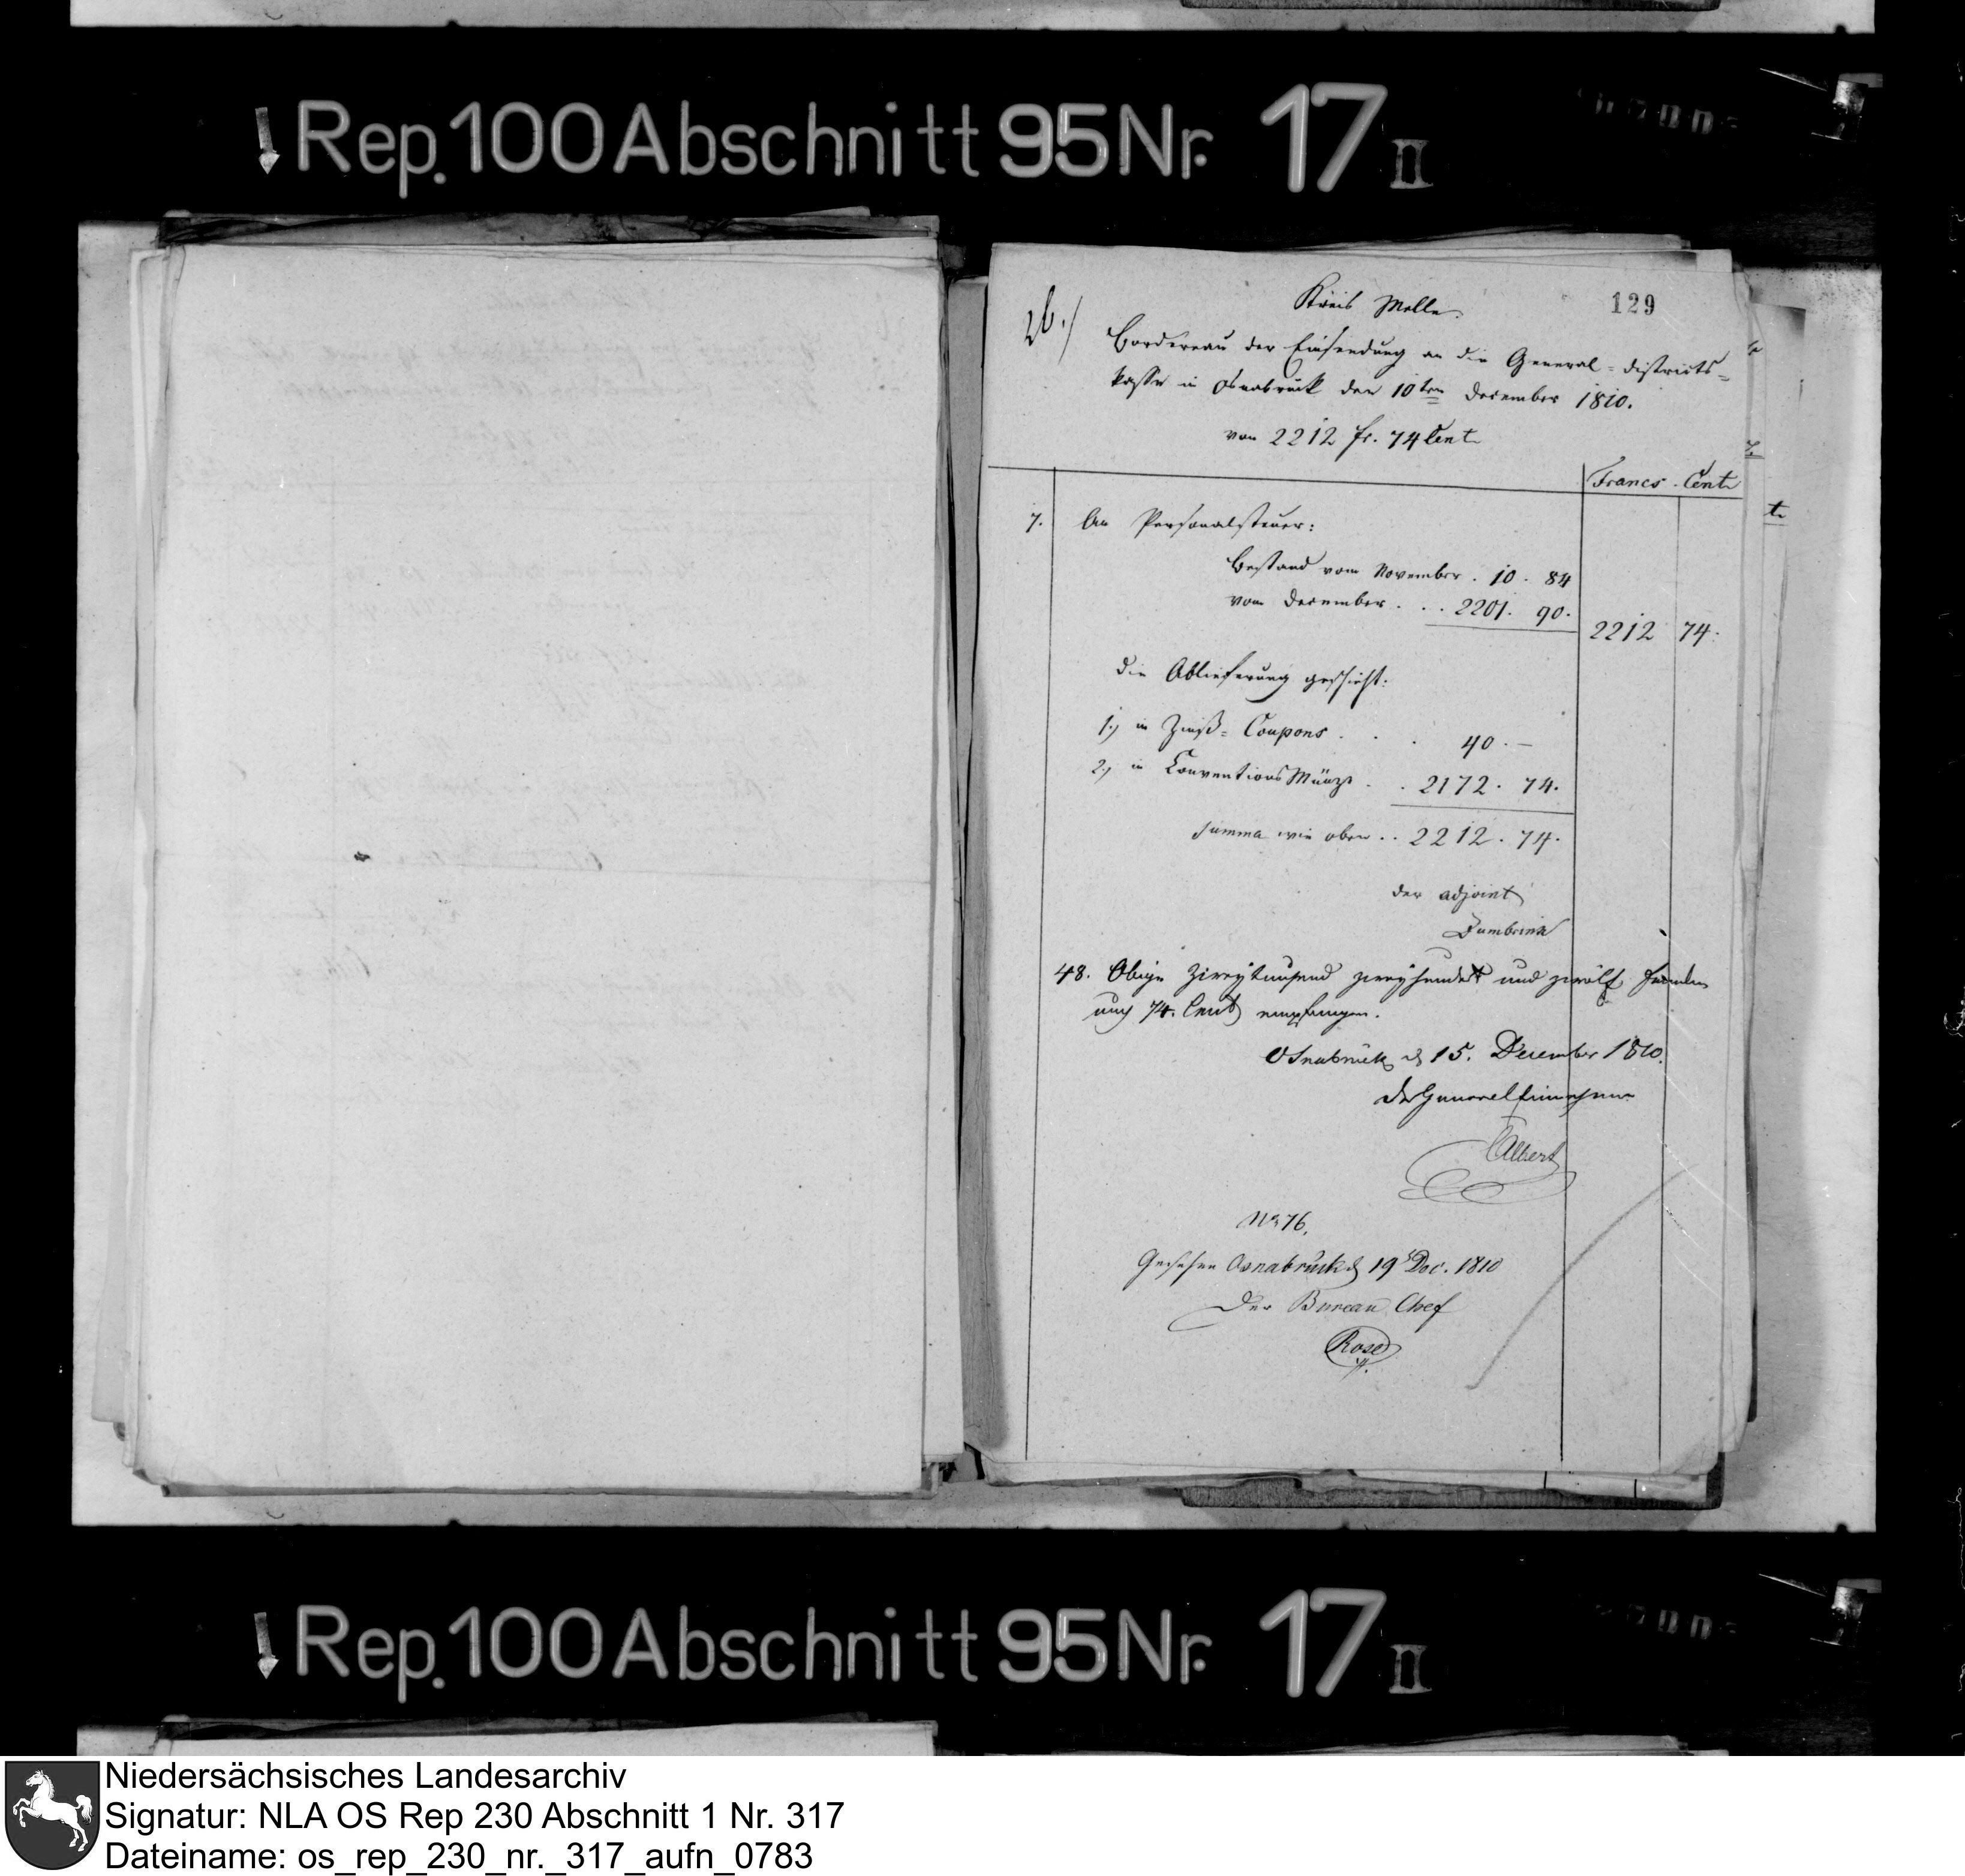 Rep. 100 Abschnitt 95 Nr. 17 II
129
Kreis Melle.
26.)
Bordereau der Einsendung an die General-Districts-
kasse in Osnabrück den 10ten December 1810.
von 2212 fr. 74 Cent
Francs. Cent
7. An Personalsteuer:
Bestand vom November . 10 . 84
vom December . . . 2201. 90.
2212 74.
Die Ablieferung geschieht:
1.) in Zinß-Coupons . . . 40. —
2.) in Conventions Münze . . 2172. 74.
Summa wie oben . . 2212. 74.
der adjoint
48. Obige zweytausend zweyhundert und zwölf Franken
auch 74. Cent empfangen.
Osnabrück d 15. December 1810.
Albert
No 76.
Gesehen Osnabrück d 19 Dec. 1810
Der Bureau Chef
Rose
Rep. 100 Abschnitt 95 Nr. 17 II
Niedersächsisches Landesarchiv
Signatur: NLA OS Rep 230 Abschnitt 1 Nr. 317
Dateiname: os_rep_230_nr._317_aufn_0783